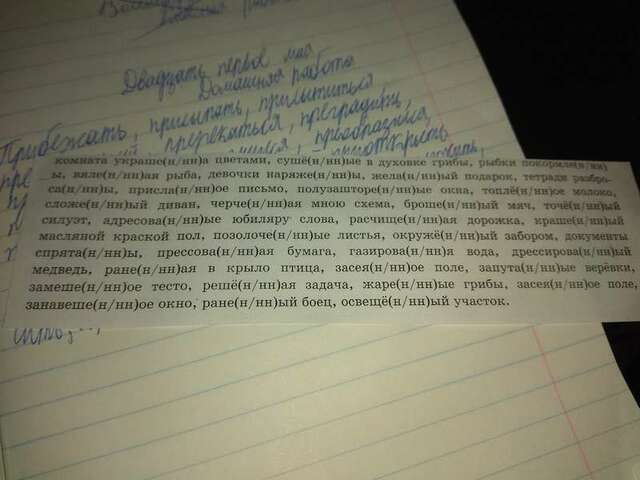 работа
Двадцать первое мая
Домашняя работа
Прибежать, присыпать,
пререкаться, преградить,
преобразился,
комната украше(н/нн)а цветами, сушё(н/нн)ые в духовке грибы, рыбки покормле(н/нн)
ы, вяле(н/нн)ая рыба, девочки наряже(н/нн)ы, жела(н/нн)ый подарок, тетради разбро-
са(н/нн)ы, присла(н/нн)ое письмо, полузашторе(н/нн)ые окна, топлё(н/нн)ое молоко,
сложе(н/нн)ый диван, черче(н/нн)ая мною схема, броше(н/нн)ый мяч, точё(н/нн)ый
силуэт, адресова(н/нн)ые юбиляру слова, расчище(н/нн)ая дорожка, краше(н/нн)ый
масляной краской пол, позолоче(н/нн)ые листья, окружё(н/нн)ый забором, документы
спрята(н/нн)ы, прессова(н/нн)ая бумага, газирова(н/нн)я вода, дрессирова(н/нн)ый
медведь, ране(н/нн)ая в крыло птица, засея(н/нн)ое поле, запута(н/нн)ые верёвки,
замеше(н/нн)ое тесто, решё(н/нн)ая задача, жаре(н/нн)ые грибы, засея(н/нн)ое поле,
занавеше(н/нн)ое окно, ране(н/нн)ый боец, освещё(н/нн)ый участок.